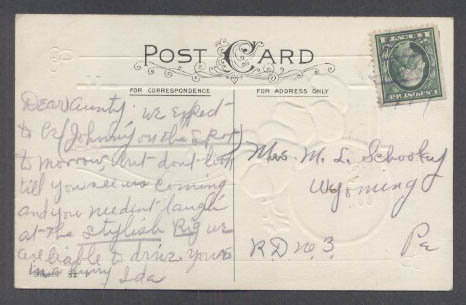 POST CARD
FOR CORRESPONDENCE
FOR ADDRESS ONLY
Dear Aunty. we expect
to be (Johnny on the Spot)
to morrow, but dont look
till you see us coming
and you needent laugh
at the stylish Rig we
are liable to drive. Yours
in a hurry Ida
Mrs. M. L. Schooley
Wyoming
R.D. No. 3. Pa